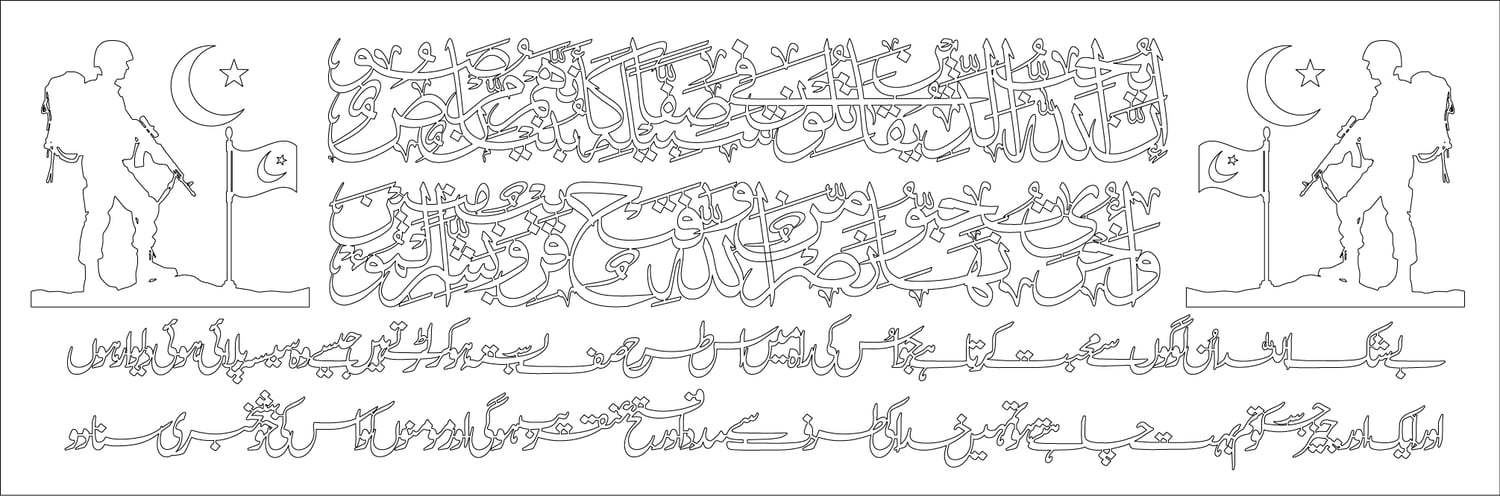 إِنَّ اللَّهَ يُحِبُّ الَّذِينَ يُقَاتِلُونَ فِي سَبِيلِهِ صَفًّا كَأَنَّهُمْ بُنْيَانٌ مَرْصُوصٌ
وَأُخْرَى تُحِبُّونَهَا نَصْرٌ مِنَ اللَّهِ وَفَتْحٌ قَرِيبٌ وَبَشِّرِ الْمُؤْمِنِينَ
بےشک اللہ اُن لوگوں سے محبت کرتا ہے جو اُس کی راہ میں اس طرح صف بستہ ہو کر لڑتے ہیں جیسے وہ سیسہ پلائی ہوئی دیوار ہوں
اور ایک اور چیز جس کو تم بہت چاہتے ہو تمہیں خدا کی طرف سے مدد اور فتح عنقریب ہوگی اور مومنوں کو اس کی خوشخبری سنا دو